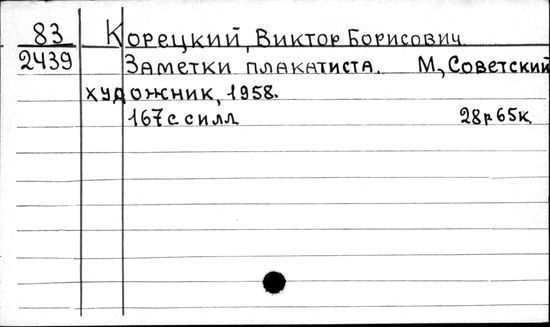 83 Корецкий, Виктор Борисович
2439 Заметки плакатиста. М., Советский
художник, 1958.
167с с илл 28р65к